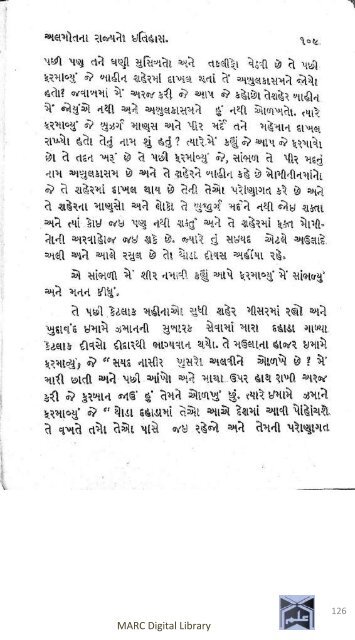 અલમોતના રાજ્યનો ઈતિહાસ. ૧૦૫
પછી પણ તને ઘણી મુસિબતો અને તકલીફો વેઠવી છે તે પછી
ફરમાવ્યું જે બાહીન શહેરમાં દાખલ થતાં તેં અબુલકાસમને જોયો
હતો? જવાબમાં મેં અરજ કરી જે આપ જે કહોછો તેશહેર બાહીન
મેં જોયુંએ નથી અને અબુલકાસમને હું નથી ઓળખતો. ત્યારે
ફરમાવ્યું જે બુઝર્ગ માણસ અને પીર મર્દે તને મહેમાન દાખલ
રાખ્યો હતો તેનું નામ શું હતું ? ત્યારે મેં કહ્યું જે આપ જે ફરમાવો
છો તે તદન ખરૂં છે તે પછી ફરમાવ્યું જે, સાંભળ તે પીર મર્દનું
નામ અબુલકાસમ છે અને તે શહેરને બાહીન કહે છે મોમીનીનમાંનો
જે તે શહેરમાં દાખલ થાય છે તેની તેઓ પરોણાગત કરે છે અને
તે શહેરના માણસો અને લોકો તે બુજુર્ગ મર્દને નથી જોઇ શકતા
અને ત્યાં કોઇ જઇ પણ નથી શકતું અને તે શહેરમાં ફક્ત મોમી-
નોની અરવાહોજ જઇ શકે છે. જ્યારે તું સય્યદ એટલે અઉલાદે
અલી અને આલે રસુલ છે તો થોડા દીવસ અહીંયા રહે.
એ સાંભળી મેં શીર નમાવી કહ્યું આપે ફરમાવ્યું મેં સાંભળ્યું
અને મનન કીધું.
તે પછી કેટલાક મહીનાઓ સુધી શહેર મીસરમાં રહ્યો અને
ખુદાવંદ ઇમામે ઝમાનની મુબારક સેવામાં મારા દહાડા ગાળ્યા
કેટલાક દીવસો દીદારથી ભાગ્યવાન થયો. તે મઉલાના હાજર ઇમામે
ફરમાવ્યું, જે “ સયદ નાસીર ખુસરો અલવીને ઓળખે છે ? મેં
મારી છાતી અને પછી આંખો અને માથા ઉપર હાથ રાખી અરજ
કરી જે કુરબાન જાઉં હું તેમને ઓળખું છું. ત્યારે ઈમામે ઝમાને
ફરમાવ્યું જે “ થોડા દહાડામાં તેઓ આએ દેશમાં આવી પોહોંચશે
તે વખતે તમો તેઓ પાસે જઇ રહેજો અને તેમની પરોણાગત
126
MARC Digital Library